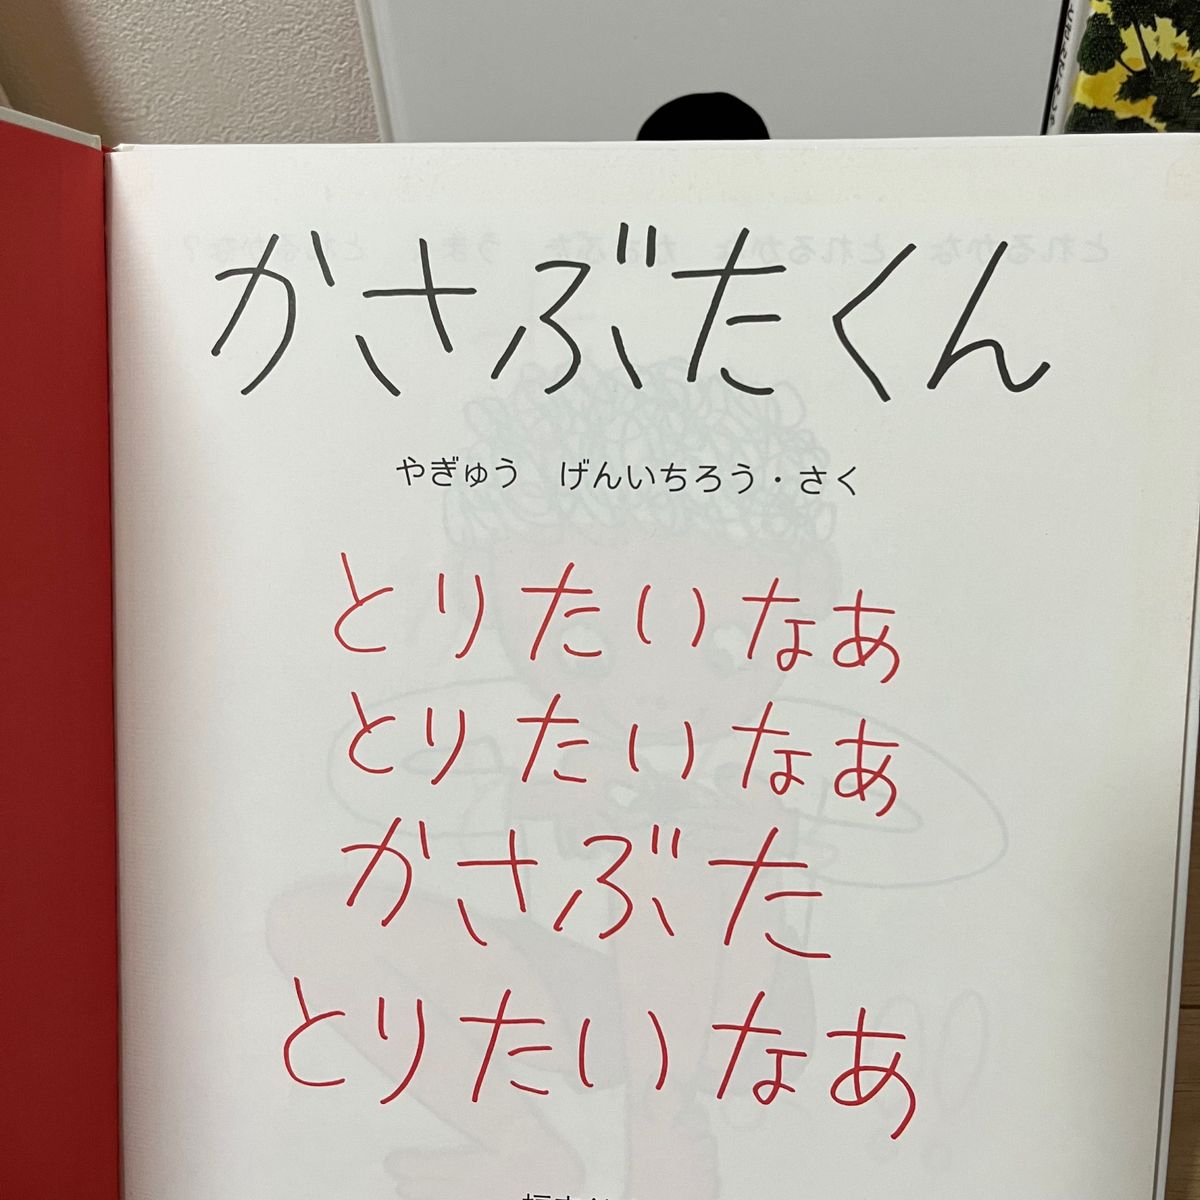 かさぶたくん
やぎゅう げんいちろう・さく
とりたいなあ
とりたいなあ
かさぶた
とりたいなあ